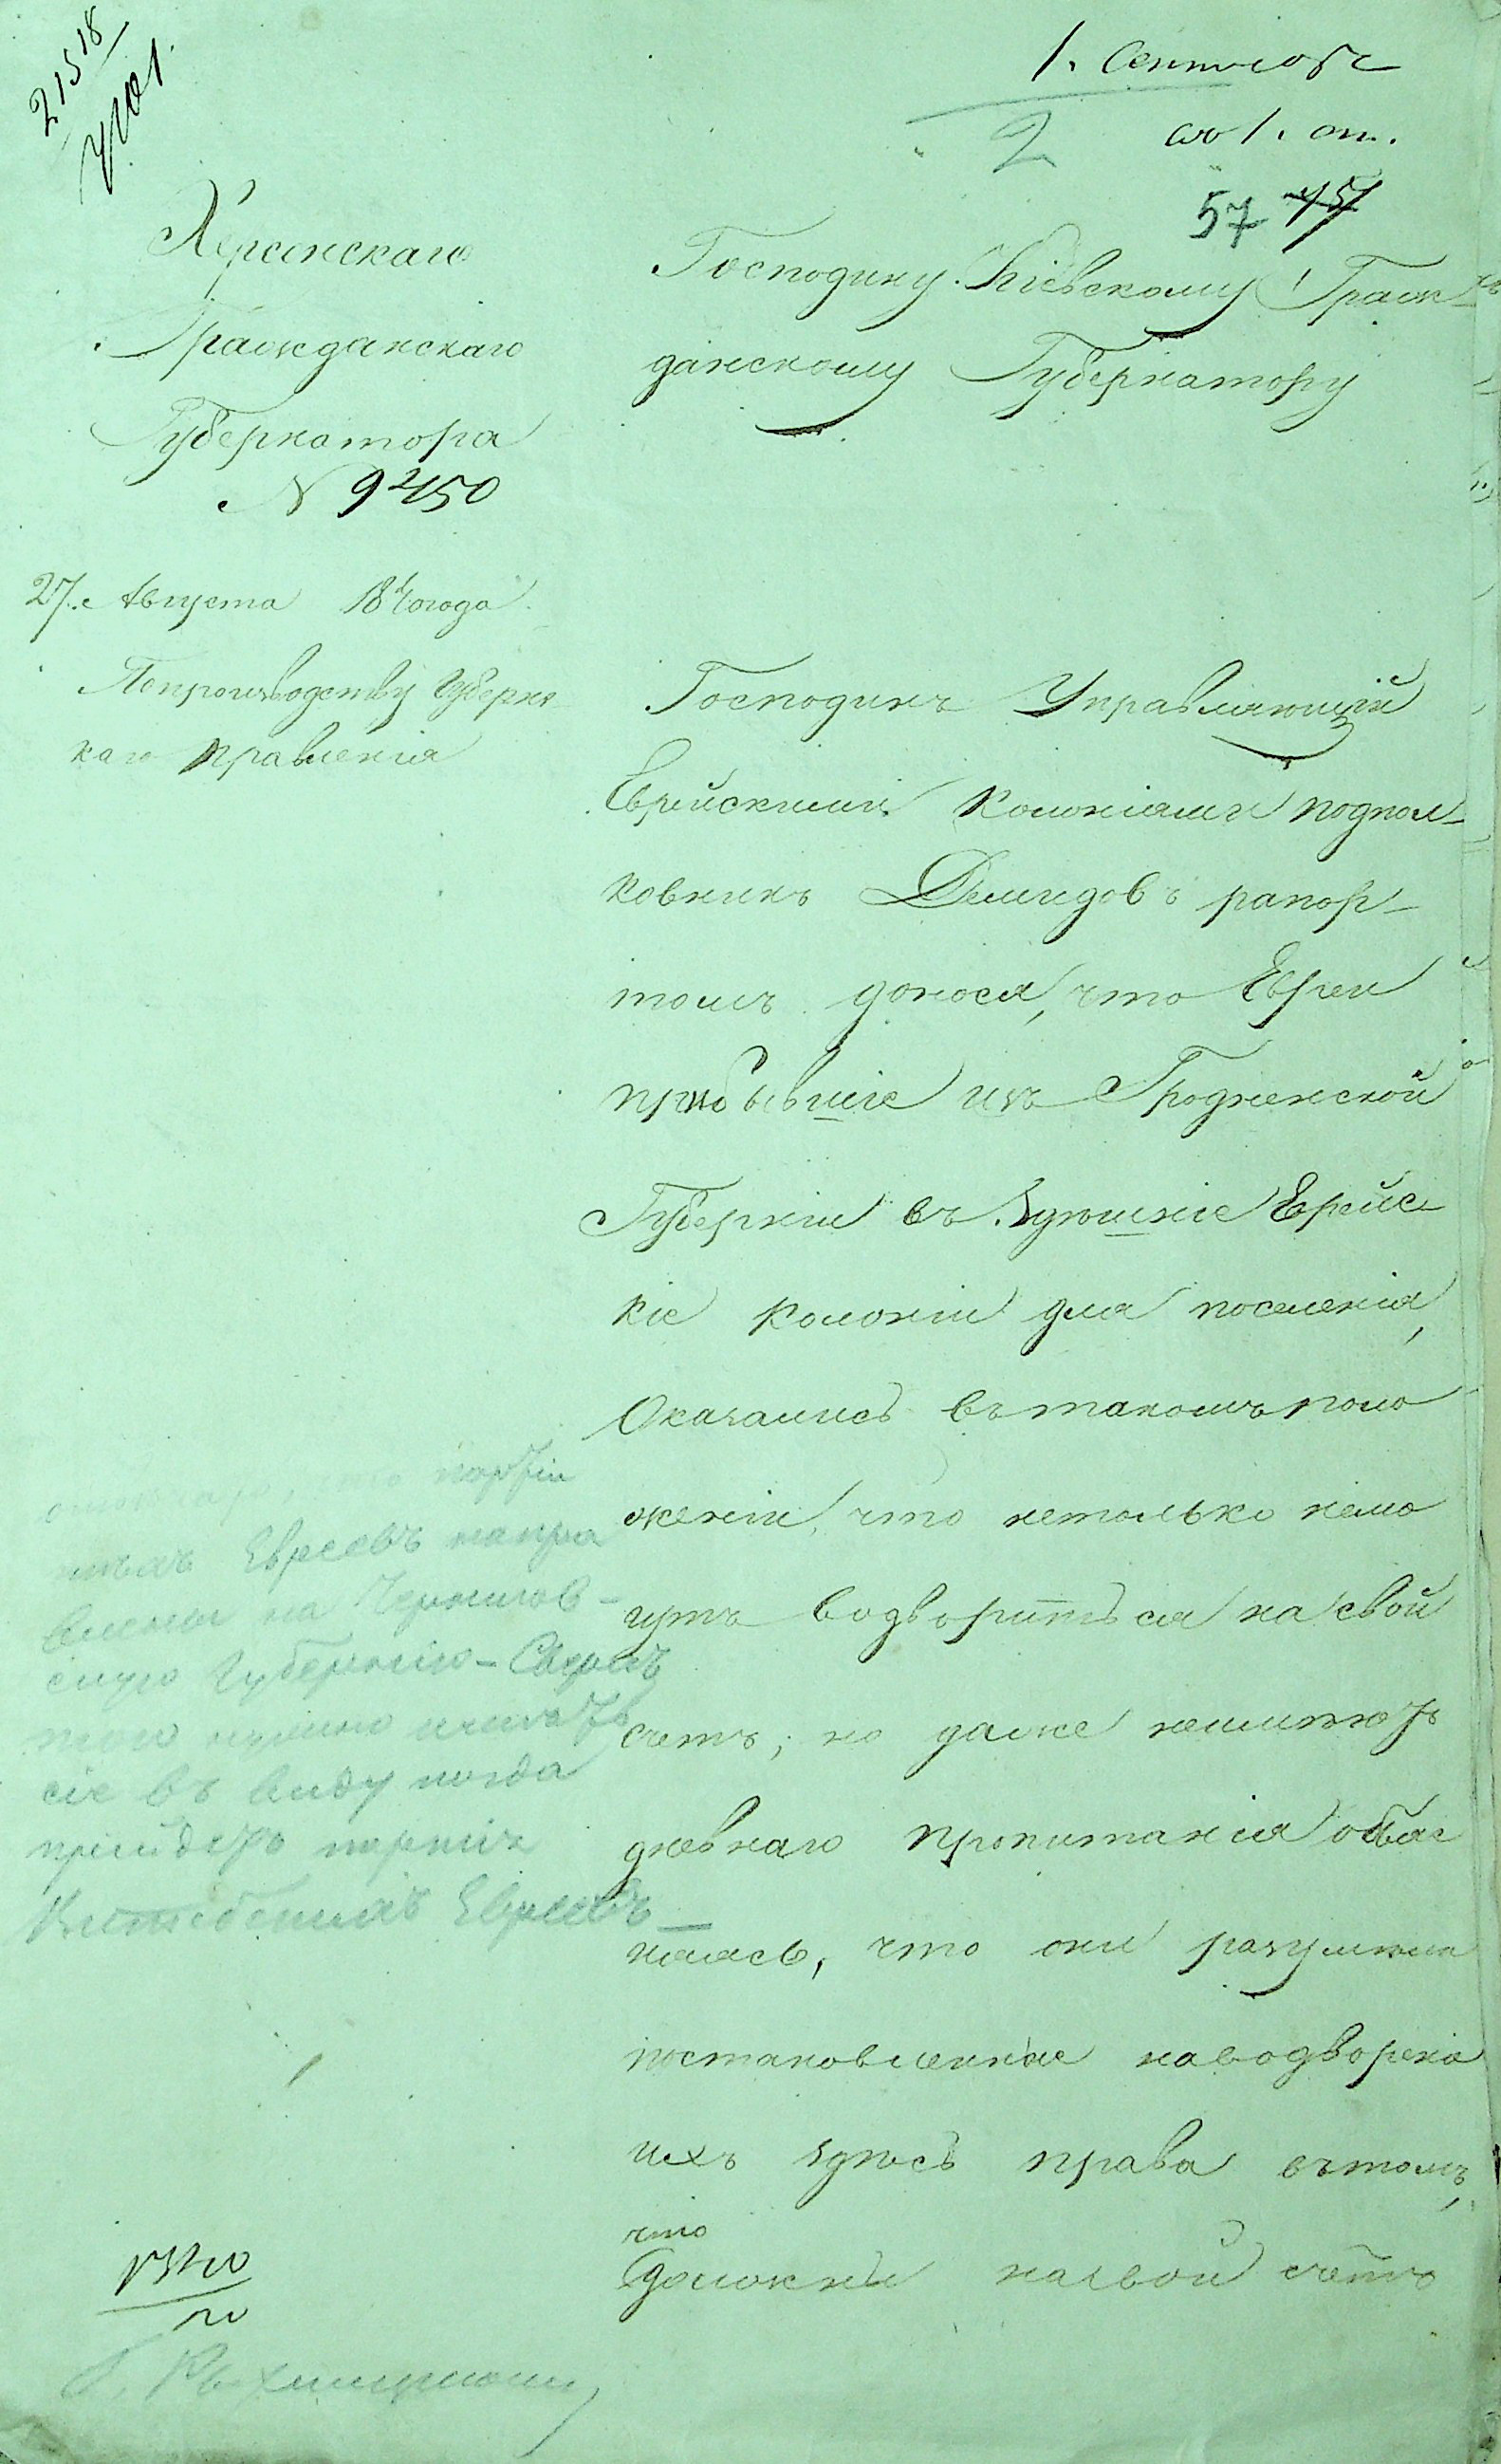 215 18
1. Сентября
2
по 1. от.
57 45
Херсонскаго
Гражданскаго
Губернатора
N 9450
27. Августа 1840 года
По производству Губернс
каго Правленія
Господину Кіевскому Граж-
данскому Губернатору
Господинъ Управляющій
Еврейскими Колоніями подпол-
ковникъ Демидовъ рапор-
томъ донося, что Евреи
прибывшіе изъ Гродненской
Губерніи въ здѣшніе Еврейс-
кіе Колоніи для поселенія,
Оказались въ такомъ поло
женіи, что нетолько немо
гутъ водвориться на свой
счетъ, но даже неимѣютъ
дневнаго пропитанія объяс
няясь, что они разумѣли
постановленные на водворенiе
ихъ здѣсь права въ томъ,
что
должны на свой счетъ
что партіи
Евреевъ напра
влены на Чернигов-
скую Губернію -
нужно имѣть
сіе въ виду когда
прійдетъ партія
Витебскихъ Евреевъ